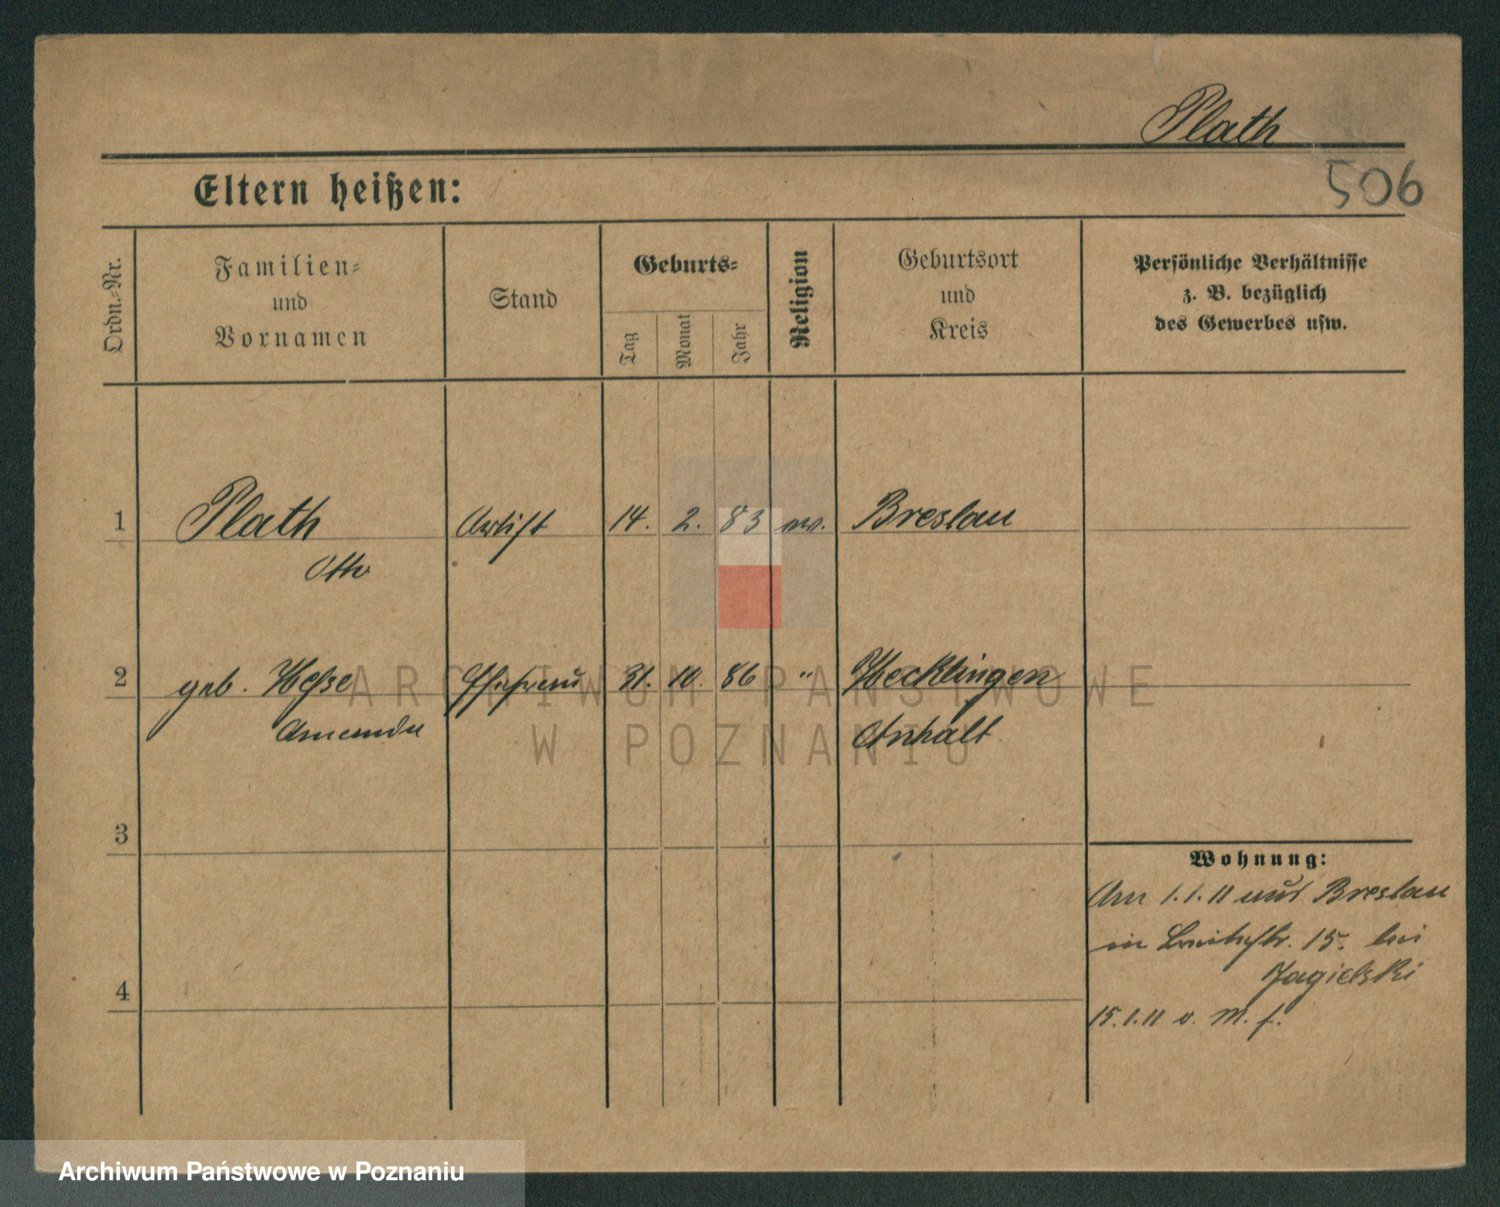 Plath
506
Eltern heißen:
Ordn.=Nr.
Familien=
und
Vornamen
Stand
Geburts=
Tag
Monat
Jahr
Religion
Geburtsort
und
Kreis
Persönliche Verhältnisse
z. B. bezüglich
des Gewerbes usw.
1 Plath Artist 14. 2. 83 Breslau
Otto
2 geb. Hesse Ehefrau 31. 10. 86 " Hecklingen
Amanda Anhalt
3
4
Wohnung:
Am 1.1.11 aus Breslau
in 15. bei
Jagielski
15.1.11 v. M. f.
ARCHIWUM PAŃSTWOWE
W POZNANIU
Archiwum Państwowe w Poznaniu